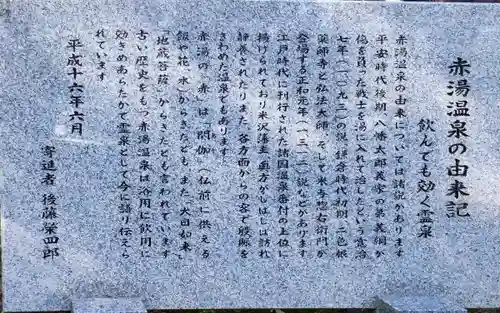 赤湯温泉の由来記
飲んでも効く霊泉
赤湯温泉の由来については諸説があります
平安時代後期 八幡太郎義家の弟義綱が
傷を負った戦士を湯に入れて治したという寛治
七年(一〇九三)の説、鎌倉時代初期 二色根
薬師寺と弘法大師、そして米本惣右衛門が
登場する正和元年(一三一二)説などがあります
江戸時代に刊行された諸国温泉番付の上位に
掲げられており米沢藩主直方がしばしば訪れ
静養されたりまた各方面からの客で殷賑を
きわめた温泉でもあります
赤湯の「赤」は「閼伽」(仏前に供える
飯や花、水)からきたとも また「大日如来」
「地蔵菩薩」からきたとも言われています
古い歴史をもつ赤湯温泉は浴用に飲用に
効きめあらたかで霊泉として今に語り伝えら
れています
平成十六年六月
寄進者 後藤榮四郎